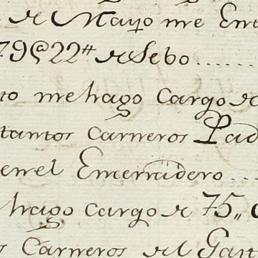 de Mayo me Ent
79@22 tt de Sebo.....
me hago Cargo de
tantos Carneros Pad
en el Emerridero...
hago Cargo de 75,,
Carneros del Gast